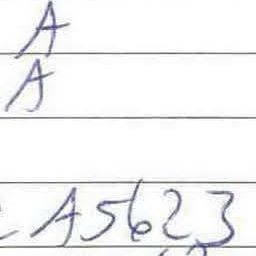 A
A
A5623